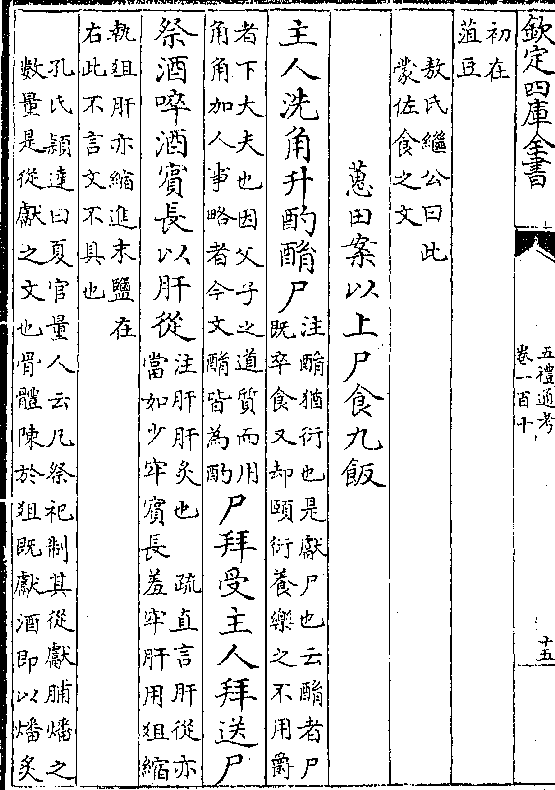 欽定四庫全書
五禮通考
卷一百十
十五
初在
菹豆
敖氏繼公曰此
蒙佐食之文
蕙田案以上尸食九飯
主人洗角升酌酳尸注酳猶衍也是獻尸也云酳者尸
既卒食又却頤衍養樂之不用爵
者下大夫也因父子之道質而用
角角加人事略者今文酳皆為酌尸拜受主人拜送尸
祭酒啐酒賓長以肝從注肝肝炙也 疏直言肝從亦
當如少牢賓長羞牢肝用俎縮
執俎肝亦縮進末鹽在
右此不言文不具也
孔氏頴達曰夏官量人云凡祭祀制其從獻脯燔之
數量是從獻之文也骨體陳於俎既獻酒即以燔炙